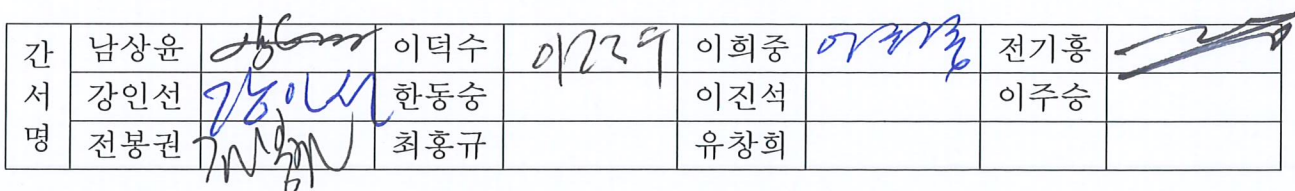 간 남상윤 이덕수 이덕수 이희중 이희중 전기흥
서 강인선 강인선 한동승 이진석 이주승
명 전봉권 최홍규 유창희